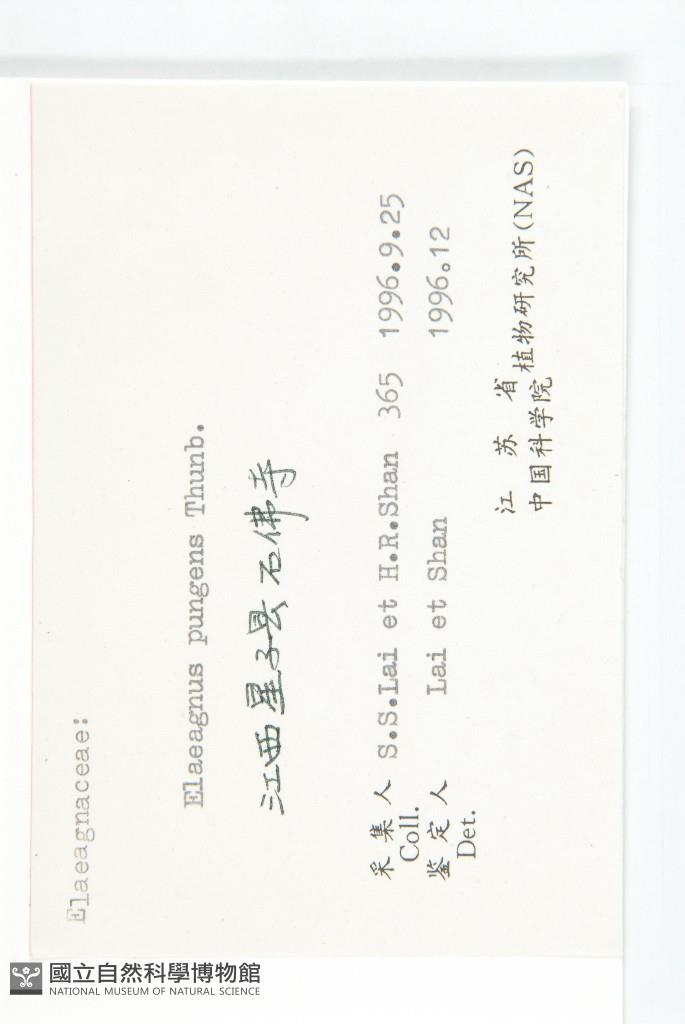 Elaeagnaceae:
Elaeagnus pungens Thunb.
江西星子县石佛寺
采集人 S.S.Lai et H.R.Shan 365 1996.9.25
Coll.
鉴定人 Lai et Shan 1996.12
Det.
江苏省
中国科学院植物研究所(NAS)
國立自然科學博物館
NATIONAL MUSEUM OF NATURAL SCIENCE